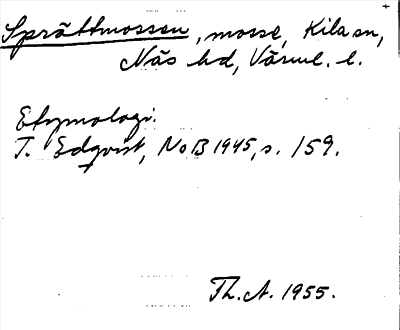 Sprättmossen, mosse, Kila sn,
Näs hd, Värml. l.
Etymologi:
T. Edqvist, NoB 1945, s. 159.
Th. A. 1955.